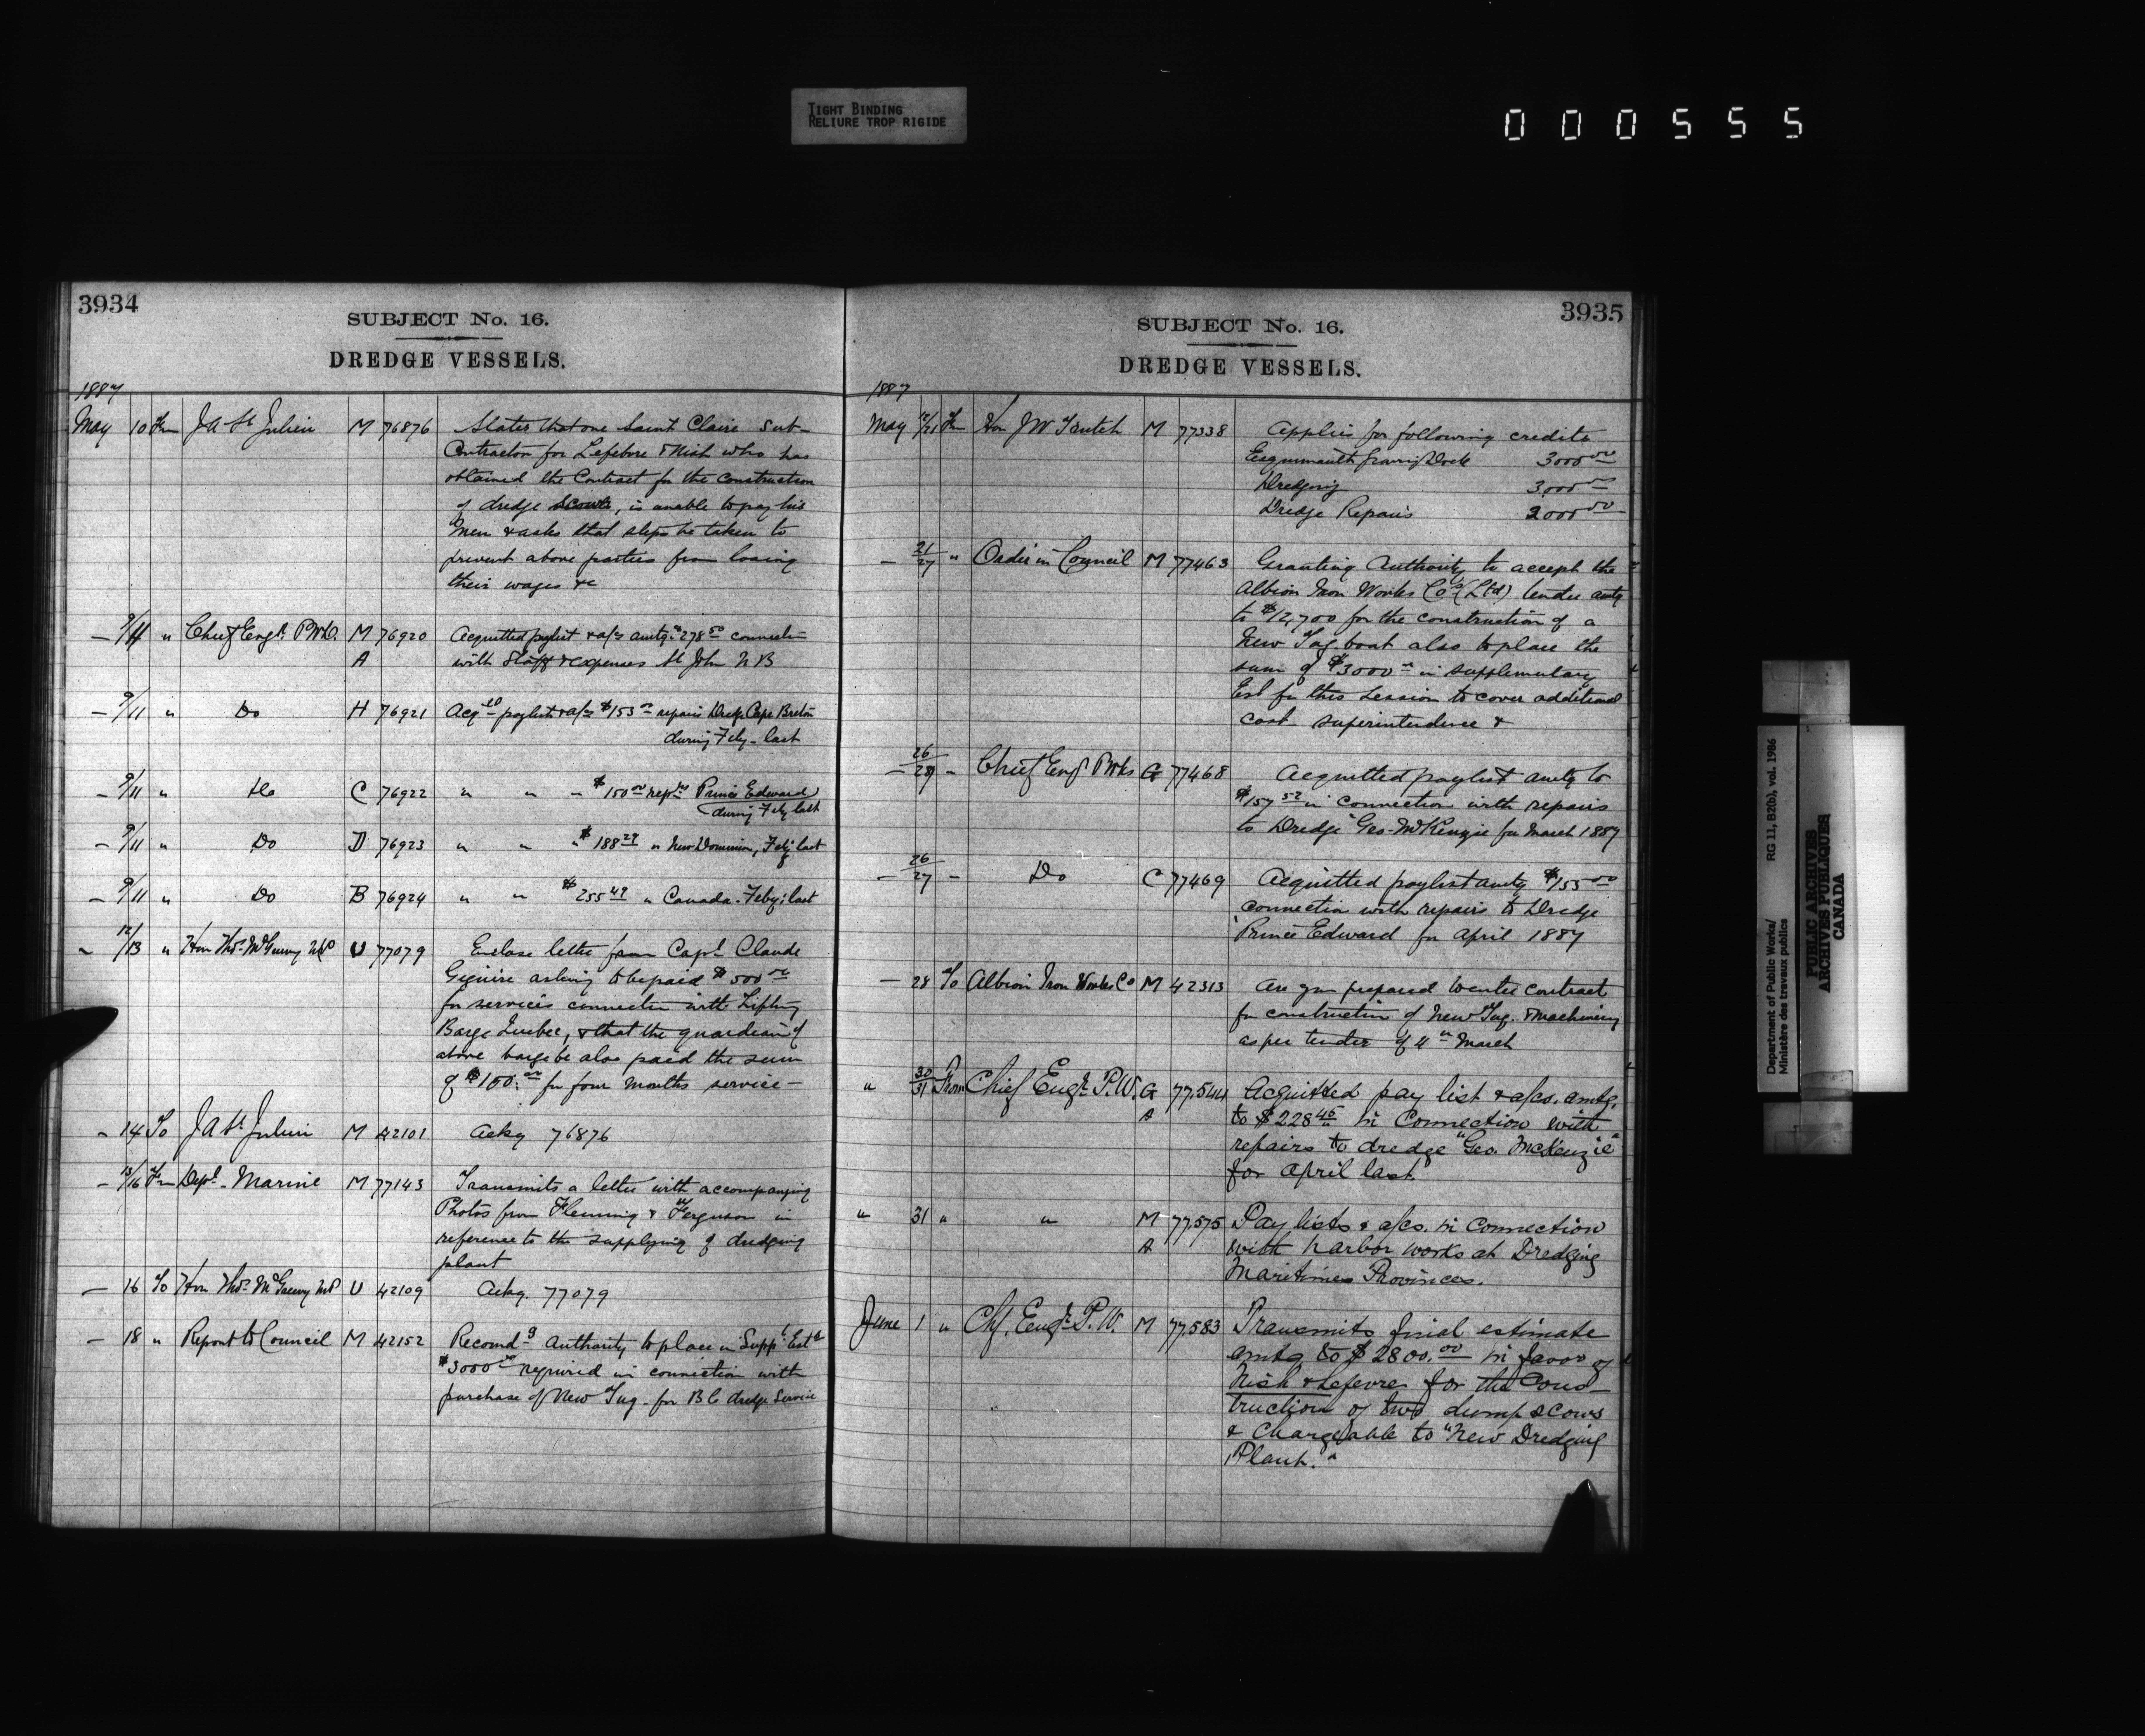 TIGHT BINDING
RELIURE TROP RIGIDE
000555
3934
SUBJECT No. 16.
DREDGE VESSELS.
1887
May 10 Fm J A St Julien M 76876 States that one Saint Claire Sub-
Contractor for Lefebvre & Nish who has
obtained the Contract for the construction
of dredge Scows, is unable to pay his
men & asks that steps be taken to
prevent above parties from losing
their wages &c
— 9/11 " Chief Engr. P Wks M 76920 Acquitted paylist & a/cs amtg. $278.50 connectn
A with Staff & expenses St John N B
— 9/11 " Do H 76921 Acqted paylist & a/cs $153.00 repairs Dredge Cape Breton
during Feby. last
— 9/11 " Do C 76922 " " " $150.00 reprs Prince Edward
during Feby last
— 9/11 " Do D 76923 " " " $188.29 " New Dominion, Feby last
— 9/11 " Do B 76924 " " $255.49 " Canada. Feby: last
— 12/13 " Hon Thos. McGreevy MP U 77079 Enclose letter from Capt. Claude
Giguire asking to be paid $500.00
for services connection with Lifting
Barge Quebec, & that the guardian of
above barge be also paid the sum
of $100.00 for four months service—
— 14 To J A St Julien M 42101 Ackg 76876
— 13/16 Fm Dept. Marine M 77143 Transmits a letter with accompanying
Photos from Fleming & Ferguson in
reference to the supplying of dredging
plant
— 16 To Hon Thos. McGreevy MP U 42109 Ackg. 77079
— 18 " Report to Council M 42152 Recomdg Authority to place in Suppl. Ests
$3000.00 required in connection with
purchase of New Tug for B C dredge Service
3935
SUBJECT No. 16.
DREDGE VESSELS.
1887
May 12/21 Fm Hon J W Trutch M 77338 Applies for following credits
Esquimault Graving Dock 3000.00
Dredging 3,000.00
Dredge Repairs 2000.00
— 21/27 " Order in Council M 77463 Granting Authority to accept the
Albion Iron Works Co. (Ltd) tender amtg
to $12,700 for the construction of a
New Tug boat also to place the
sum of $3000.00 in supplementary
Est for this Session to cover additional
cost superintendence &
— 26/27 - Chief Engr P Wks G 77468 Acquitted paylist amtg to
$157.52 in connection with repairs
to Dredge "Geo. McKenzie for March 1887
— 26/27 - Do C 77469 Acquitted paylist amtg $155.00
connection with repairs to Dredge
"Prince Edward for April 1887
— 28 To Albion Iron Works Co M 42313 Are you prepared to enter contract
for construction of New Tug. & machinery
as per tender of 4th March
" 30/31 From Chief Engr. P.W. G 77.544 Acquitted pay list & a/cs. amtg.
A to $228.45 in Connection with
repairs to dredge "Geo. McKenzie"
for April last.
" 31 " " M 77.575 Pay lists & a/cs. in connection
A with harbor works at Dredging
Maritime Provinces.
June 1 " Chf. Engr. P.W. M 77.583 Transmits final estimate
amtg to $2800.00 in favor of
Nish & Lefevre for the Cons-
truction of two dump scows
& Chargeable to "New Dredging
Plant."
Department of Public Works/
Ministère des travaux publics
RG 11, B2(b), vol. 1986
PUBLIC ARCHIVES
ARCHIVES PUBLIQUES
CANADA